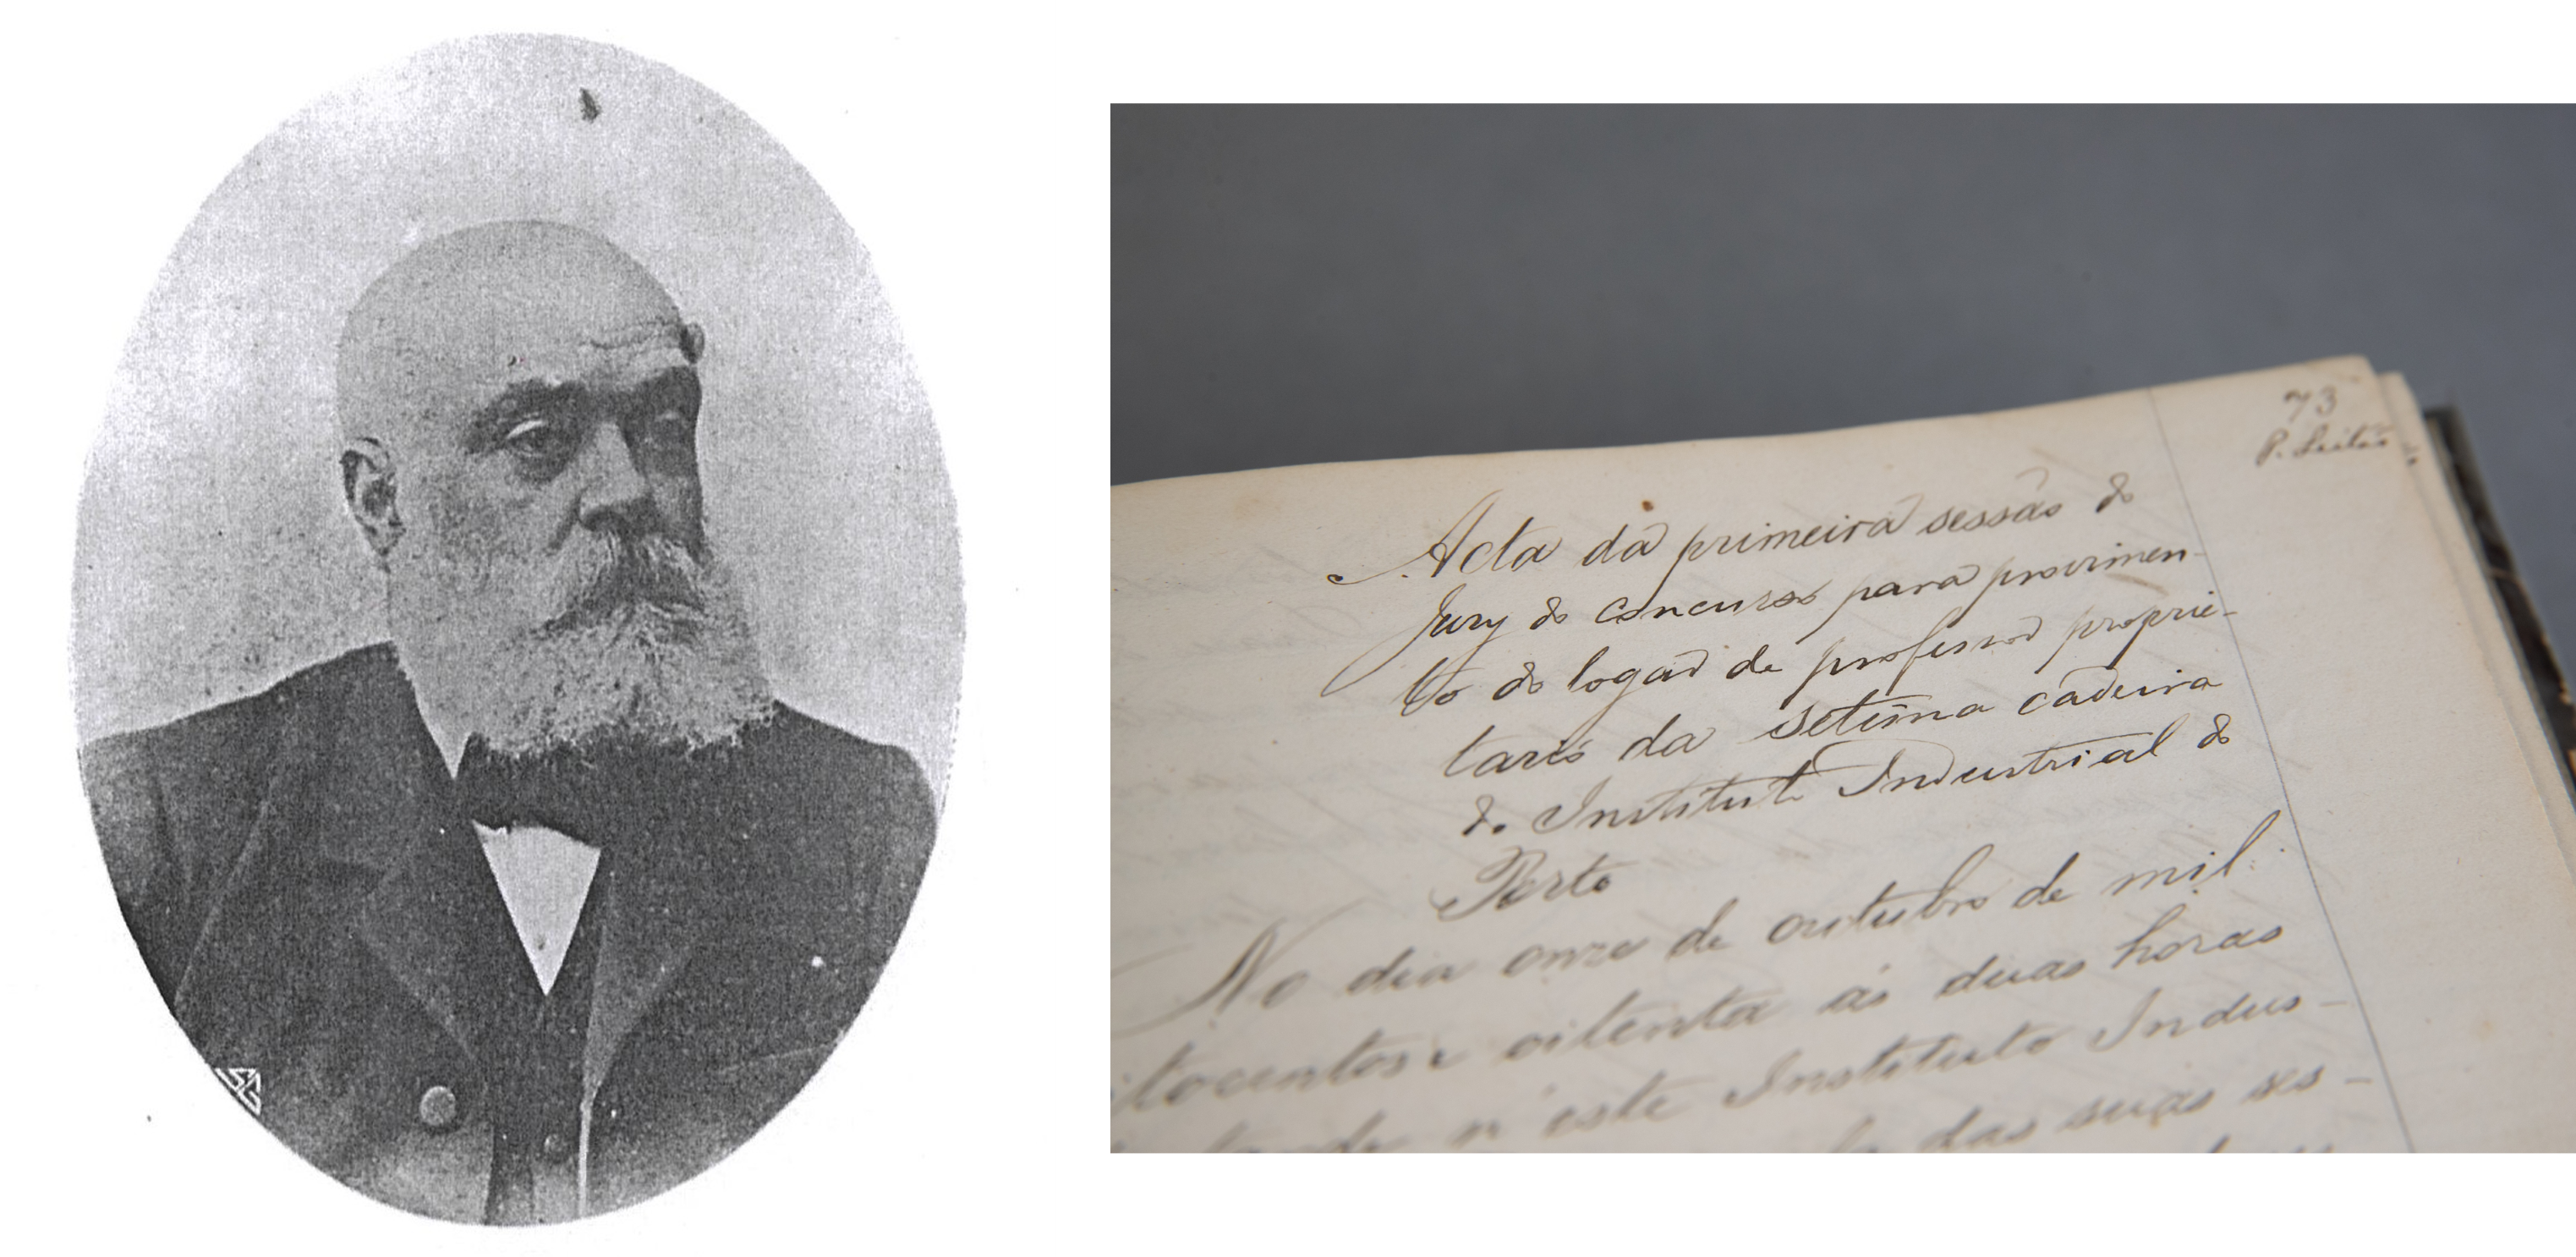 73
P. Leitão
Acta da primeira sessão do
Jury do concurso para provimen-
to do logar de professor proprie-
tario da setima cadeira
do Instituto Industrial do
Porto
No dia onze de outubro de mil
itocentos e oitenta ás duas horas
da tarde n'este Instituto Indus-
das suas ses-